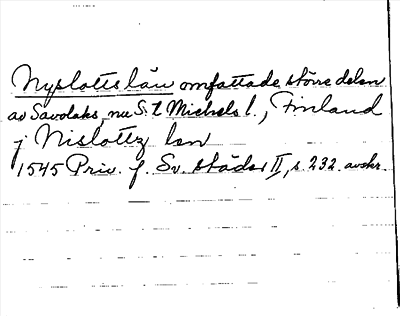 Nyslottslän omfattade större delen
av Savolaks, nu S:t Michels l., Finland
j Nislottz lan
1545 Priv. f. Sv. städer II, s. 232. avskr.